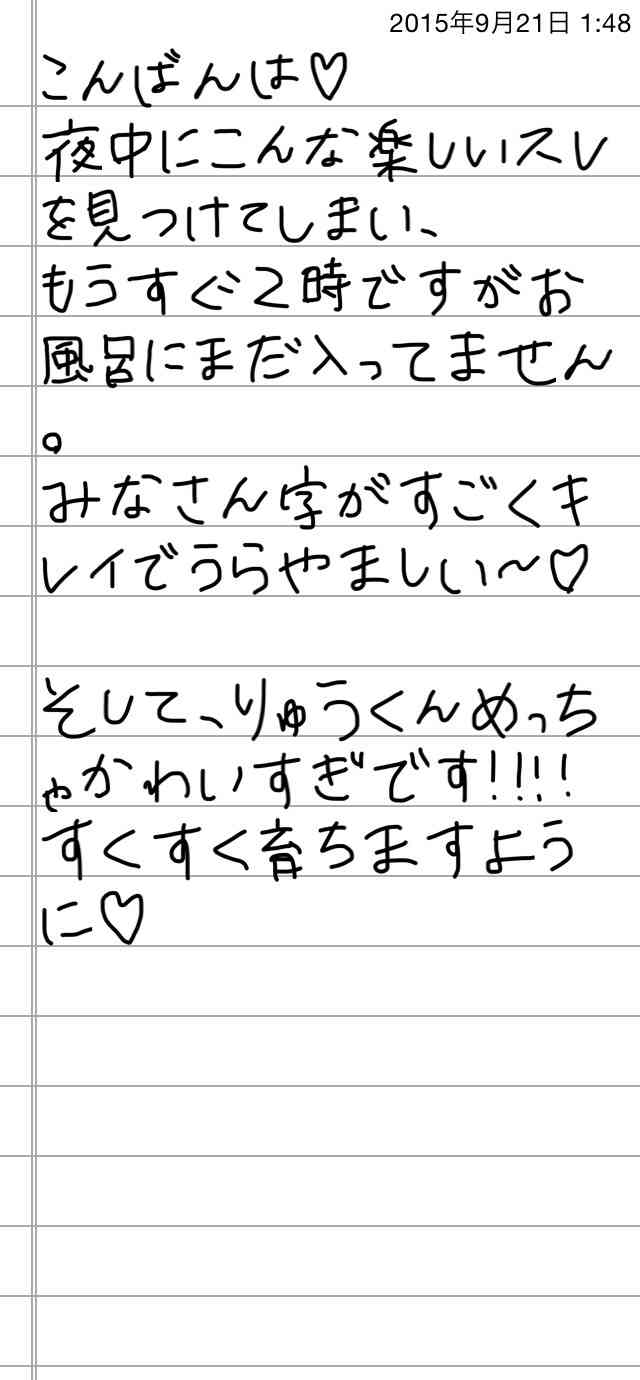 2015年9月21日 1:48
こんばんは♡
夜中にこんな楽しいスレ
を見つけてしまい、
もうすぐ2時ですがお
風呂にまだ入ってません
。
みなさん字がすごくキ
レイでうらやましい〜♡
そして、りゅうくんめっち
ゃかわいすぎです!!!!
すくすく育ちますよう
に♡